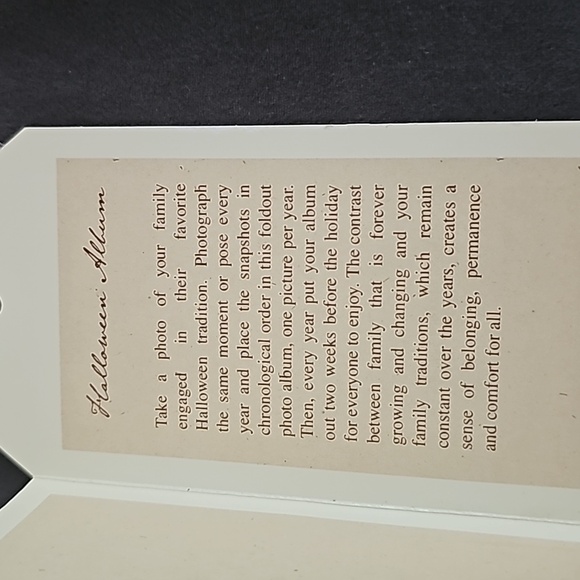 Halloween Album
Take a photo of your family
engaged in their favorite
Halloween tradition. Photograph
the same moment or pose every
year and place the snapshots in
chronological order in this foldout
photo album, one picture per year.
Then, every year put your album
out two weeks before the holiday
for everyone to enjoy. The contrast
between family that is forever
growing and changing and your
family traditions, which remain
constant over the years, creates a
sense of belonging, permanence
and comfort for all.